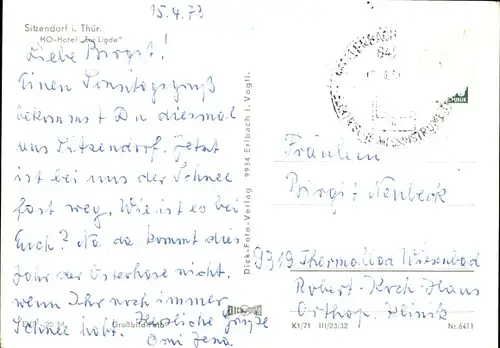 15.4.73
Sitzendorf i. Thür.
HO-Hotel „Zur Linde"
Liebe Birgit!
Einen Sonntagsgruß
bekommst Du diesmal
aus Sitzendorf. Jetzt
ist bei uns der Schnee
fast weg. Wie ist es bei
Euch? Na da kommt dies
Jahr der Osterhase nicht,
wenn Ihr noch immer
Schnee habt. Herzliche Grüße
Omi Jena.
Großbild-Foto
Dick-Foto-Verlag 9934 Erlbach i. Vogtl.
Fräulein
Birgit Neubeck
9319 Thermalbad Wiesenbad
Robert-Koch-Haus
Orthop. Klinik
K1/71 III/23/32
Nr. 6411